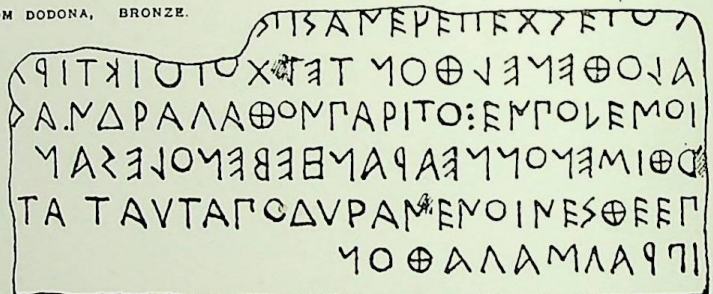 OM DODONA, BRONZE.
ΤΙΣΑΝΕΡΕΙΤΕΧΣΕΝΟ
ΑΛΟΘΕΝΕΛΘΟΝ ΤΕΤΙΧΟΝΟΙΚΤΙΡΑ
ΣΑΝΔΡΑΓΑΘΟΝΠΑΡΙΤΟ⋮ΕΝΠΟΛΕΜΟΙ
ΦΘΙΜΕΝΟΝΝΕΑΡΑΝΗΕΒΕΝΟΛΕΣΑΝ
ΤΑ ΤΑΥΤΑΠΟΔΥΡΑΜΕΝΟΙΝΕΣΘΕΕΠ
ΙΠΡΑΓΜΑΓΑΘΟΝ